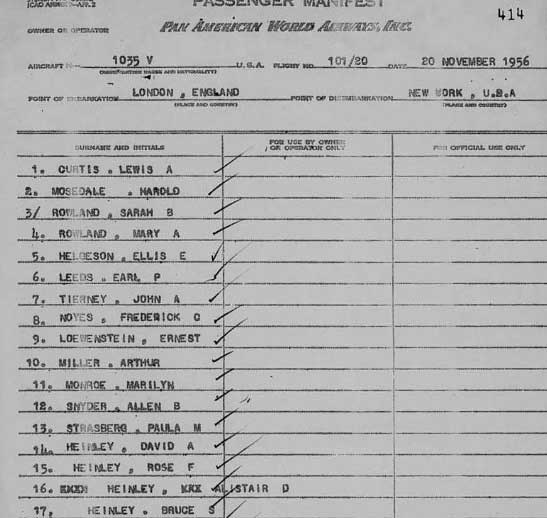 PASSENGER MANIFEST
414
OWNER OR OPERATOR PAN AMERICAN WORLD AIRWAYS, INC.
AIRCRAFT 1035 V U.S.A. FLIGHT NO. 101/20 DATE 20 NOVEMBER 1956
(REGISTRATION MARKS AND NATIONALITY)
POINT OF EMBARKATION LONDON, ENGLAND POINT OF DISEMBARKATION NEW YORK, U.S.A
(PLACE AND COUNTRY) (PLACE AND COUNTRY)
SURNAME AND INITIALS FOR USE BY OWNER OR OPERATOR ONLY FOR OFFICIAL USE ONLY
1. CURTIS, LEWIS A
2. MOSEDALE, HAROLD
3/ ROWLAND, SARAH B
4. ROWLAND, MARY A
5. HELGESON, ELLIS E
6. LEEDS, EARL P
7. TIERNEY, JOHN A
8. NOYES, FREDERICK C
9. LOEWENSTEIN, ERNEST
10. MILLER, ARTHUR
11. MONROE, MARILYN
12. SNYDER, ALLEN B
13. STRASBERG, PAULA M
14. HEINLEY, DAVID A
15. HEINLEY, ROSE F
16. HEINLEY, ALISTAIR D
17. HEINLEY, BRUCE S